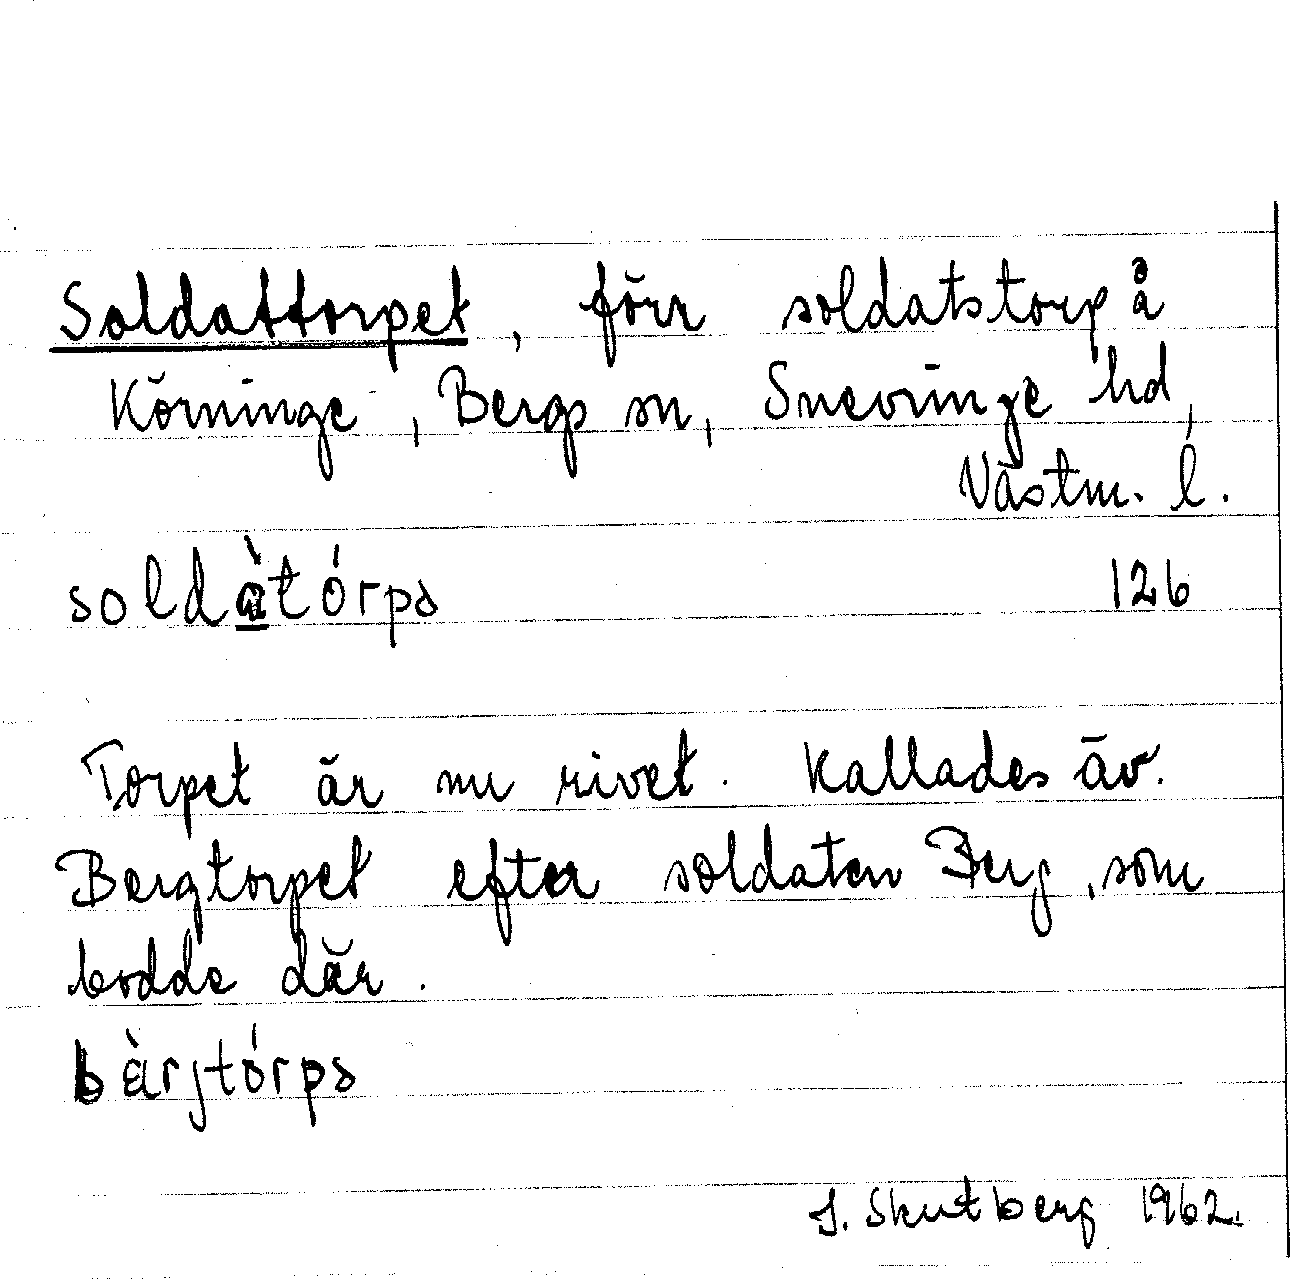 Soldattorpet, förr soldatstorp å
Körninge, Bergs sn, Snevringe hd,
Västm. l.
soldàtórpə 126
Torpet är nu rivet. Kallades äv.
Bergtorpet efter soldaten Berg, som
bodde där.
bàrjtórpə
J. Skutberg 1962.